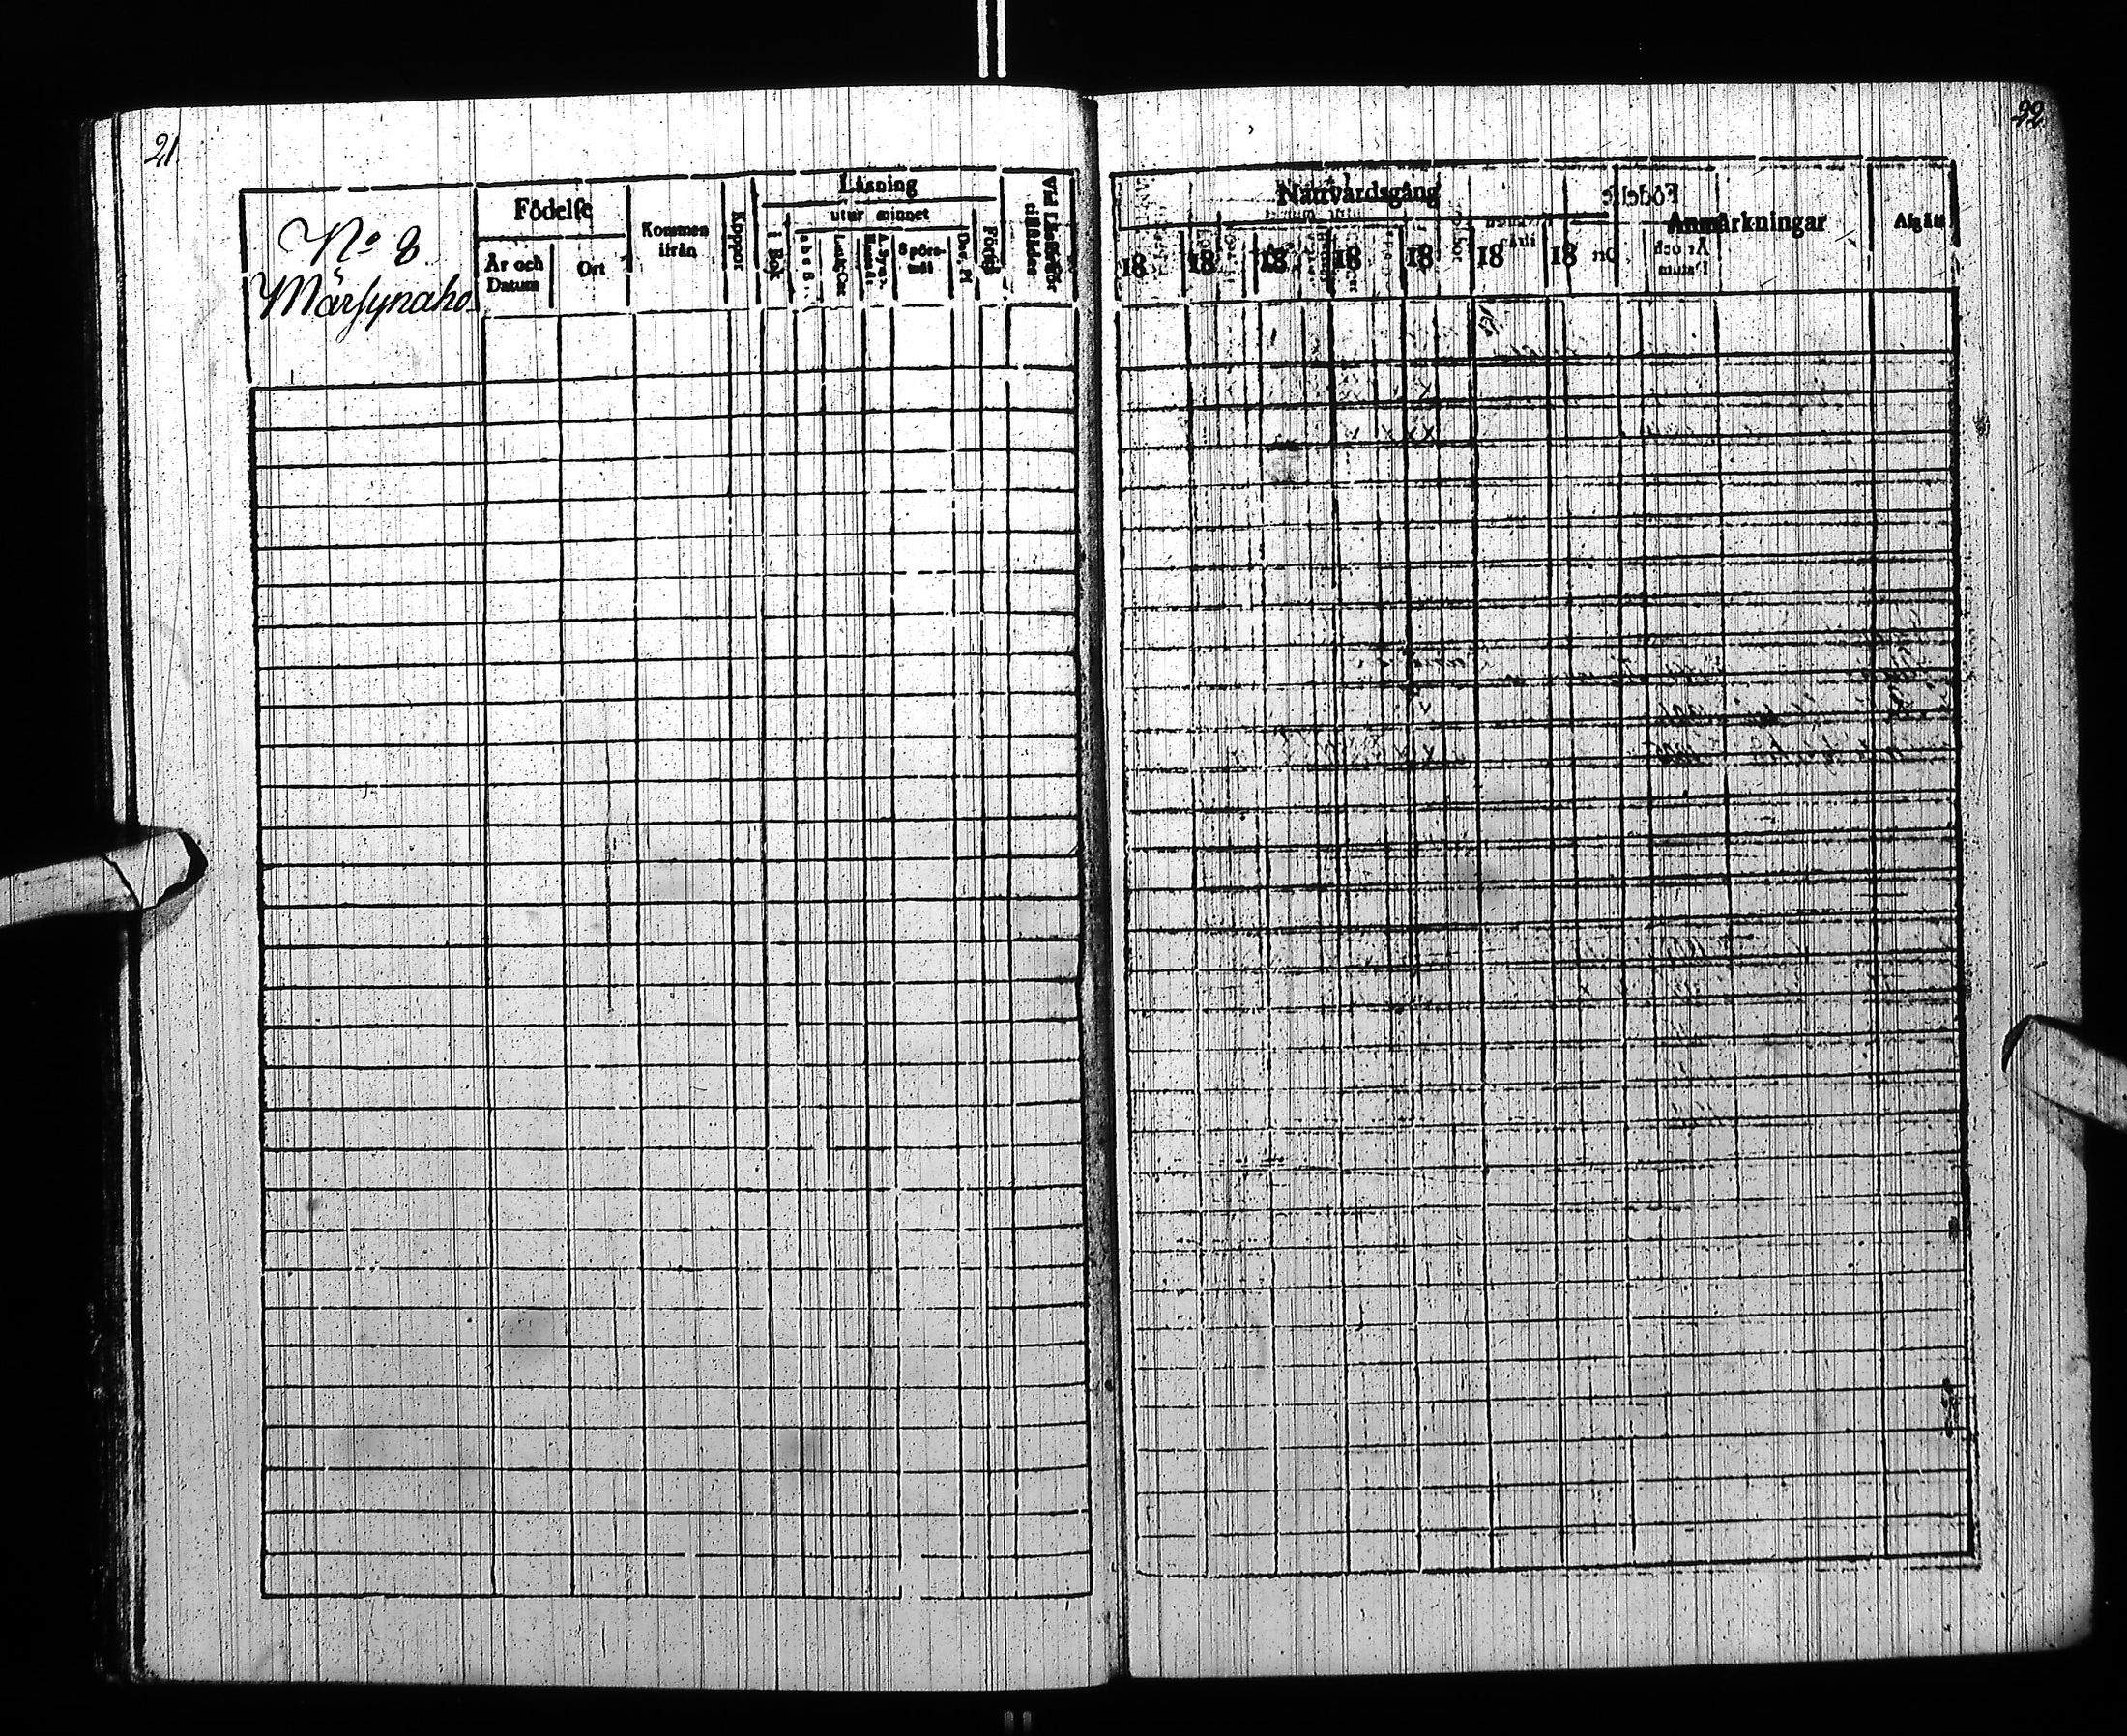 21
No 8
Märsynaho
Födelse
År och Datum
Ort
Kommen ifrån
Koppor
Läsning
i Bok
utur minnet
a b c B.
Luth. Cat.
8 spörsmål
Dav. Ps.
Förstå
Vid Läsförhör tillstädes
22
Nattvardsgång
18 18 18 18 18 18 18
Anmärkningar
Afgått